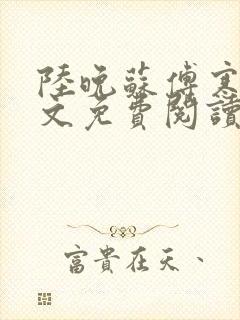 陸晚蘇傅寒
文免費閱讀
富貴在天、